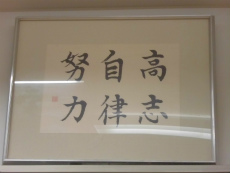 高志
自律
努力